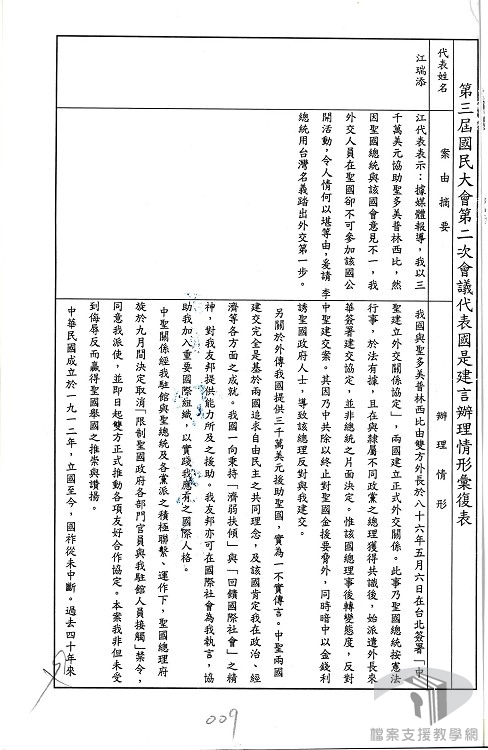 第三屆國民大會第二次會議代表國是建言辦理情形彙復表
代表姓名
案由摘要
辦理情形
江瑞添
江代表表示：據媒體報導，我以三
千萬美元協助聖多美普林西比，然
因聖國總統與該國會意見不一，我
外交人員在聖國卻不可參加該國公
開活動，令人情何以堪等由，爰請 李
總統用台灣名義踏出外交第一步。
我國與聖多美普林西比由雙方外長於八十六年五月六日在台北簽署「中
聖建立外交關係協定」，兩國建立正式外交關係。此事乃聖國總統按憲法
行事，於法有據，且在與隸屬不同政黨之總理獲得共識後，始派遣外長來
華簽署建交協定，並非總統之片面決定。惟該國總理事後轉變態度，反對
中聖建交案。其因乃中共除以終止對聖國金援要脅外，同時暗中以金錢利
誘聖國政府人士，導致該總理反對與我建交。
另關於外傳我國提供三千萬美元援助聖國，實為一不實傳言。中聖兩國
建交完全是基於兩國追求自由民主之共同理念，及該國肯定我在政治、經
濟等各方面之成就。我國一向秉持「濟弱扶傾」與「回饋國際社會」之精
神，對我友邦提供能力所及之援助。我友邦亦可在國際社會為我執言，協
助我加入重要國際組織，以實踐我應有之國際人格。
中聖關係經我駐館與聖總統及各黨派之積極聯繫、運作下，聖國總理府
旋於九月間決定取消「限制聖國政府各部門官員與我駐館人員接觸」禁令，
同意我派使，並即日起雙方正式推動各項友好合作協定。本案我非但未受
到侮辱反而贏得聖國舉國之推崇與讚揚。
中華民國成立於一九一二年，立國至今，國祚從未中斷。過去四十年來
009
檔案支援教學網